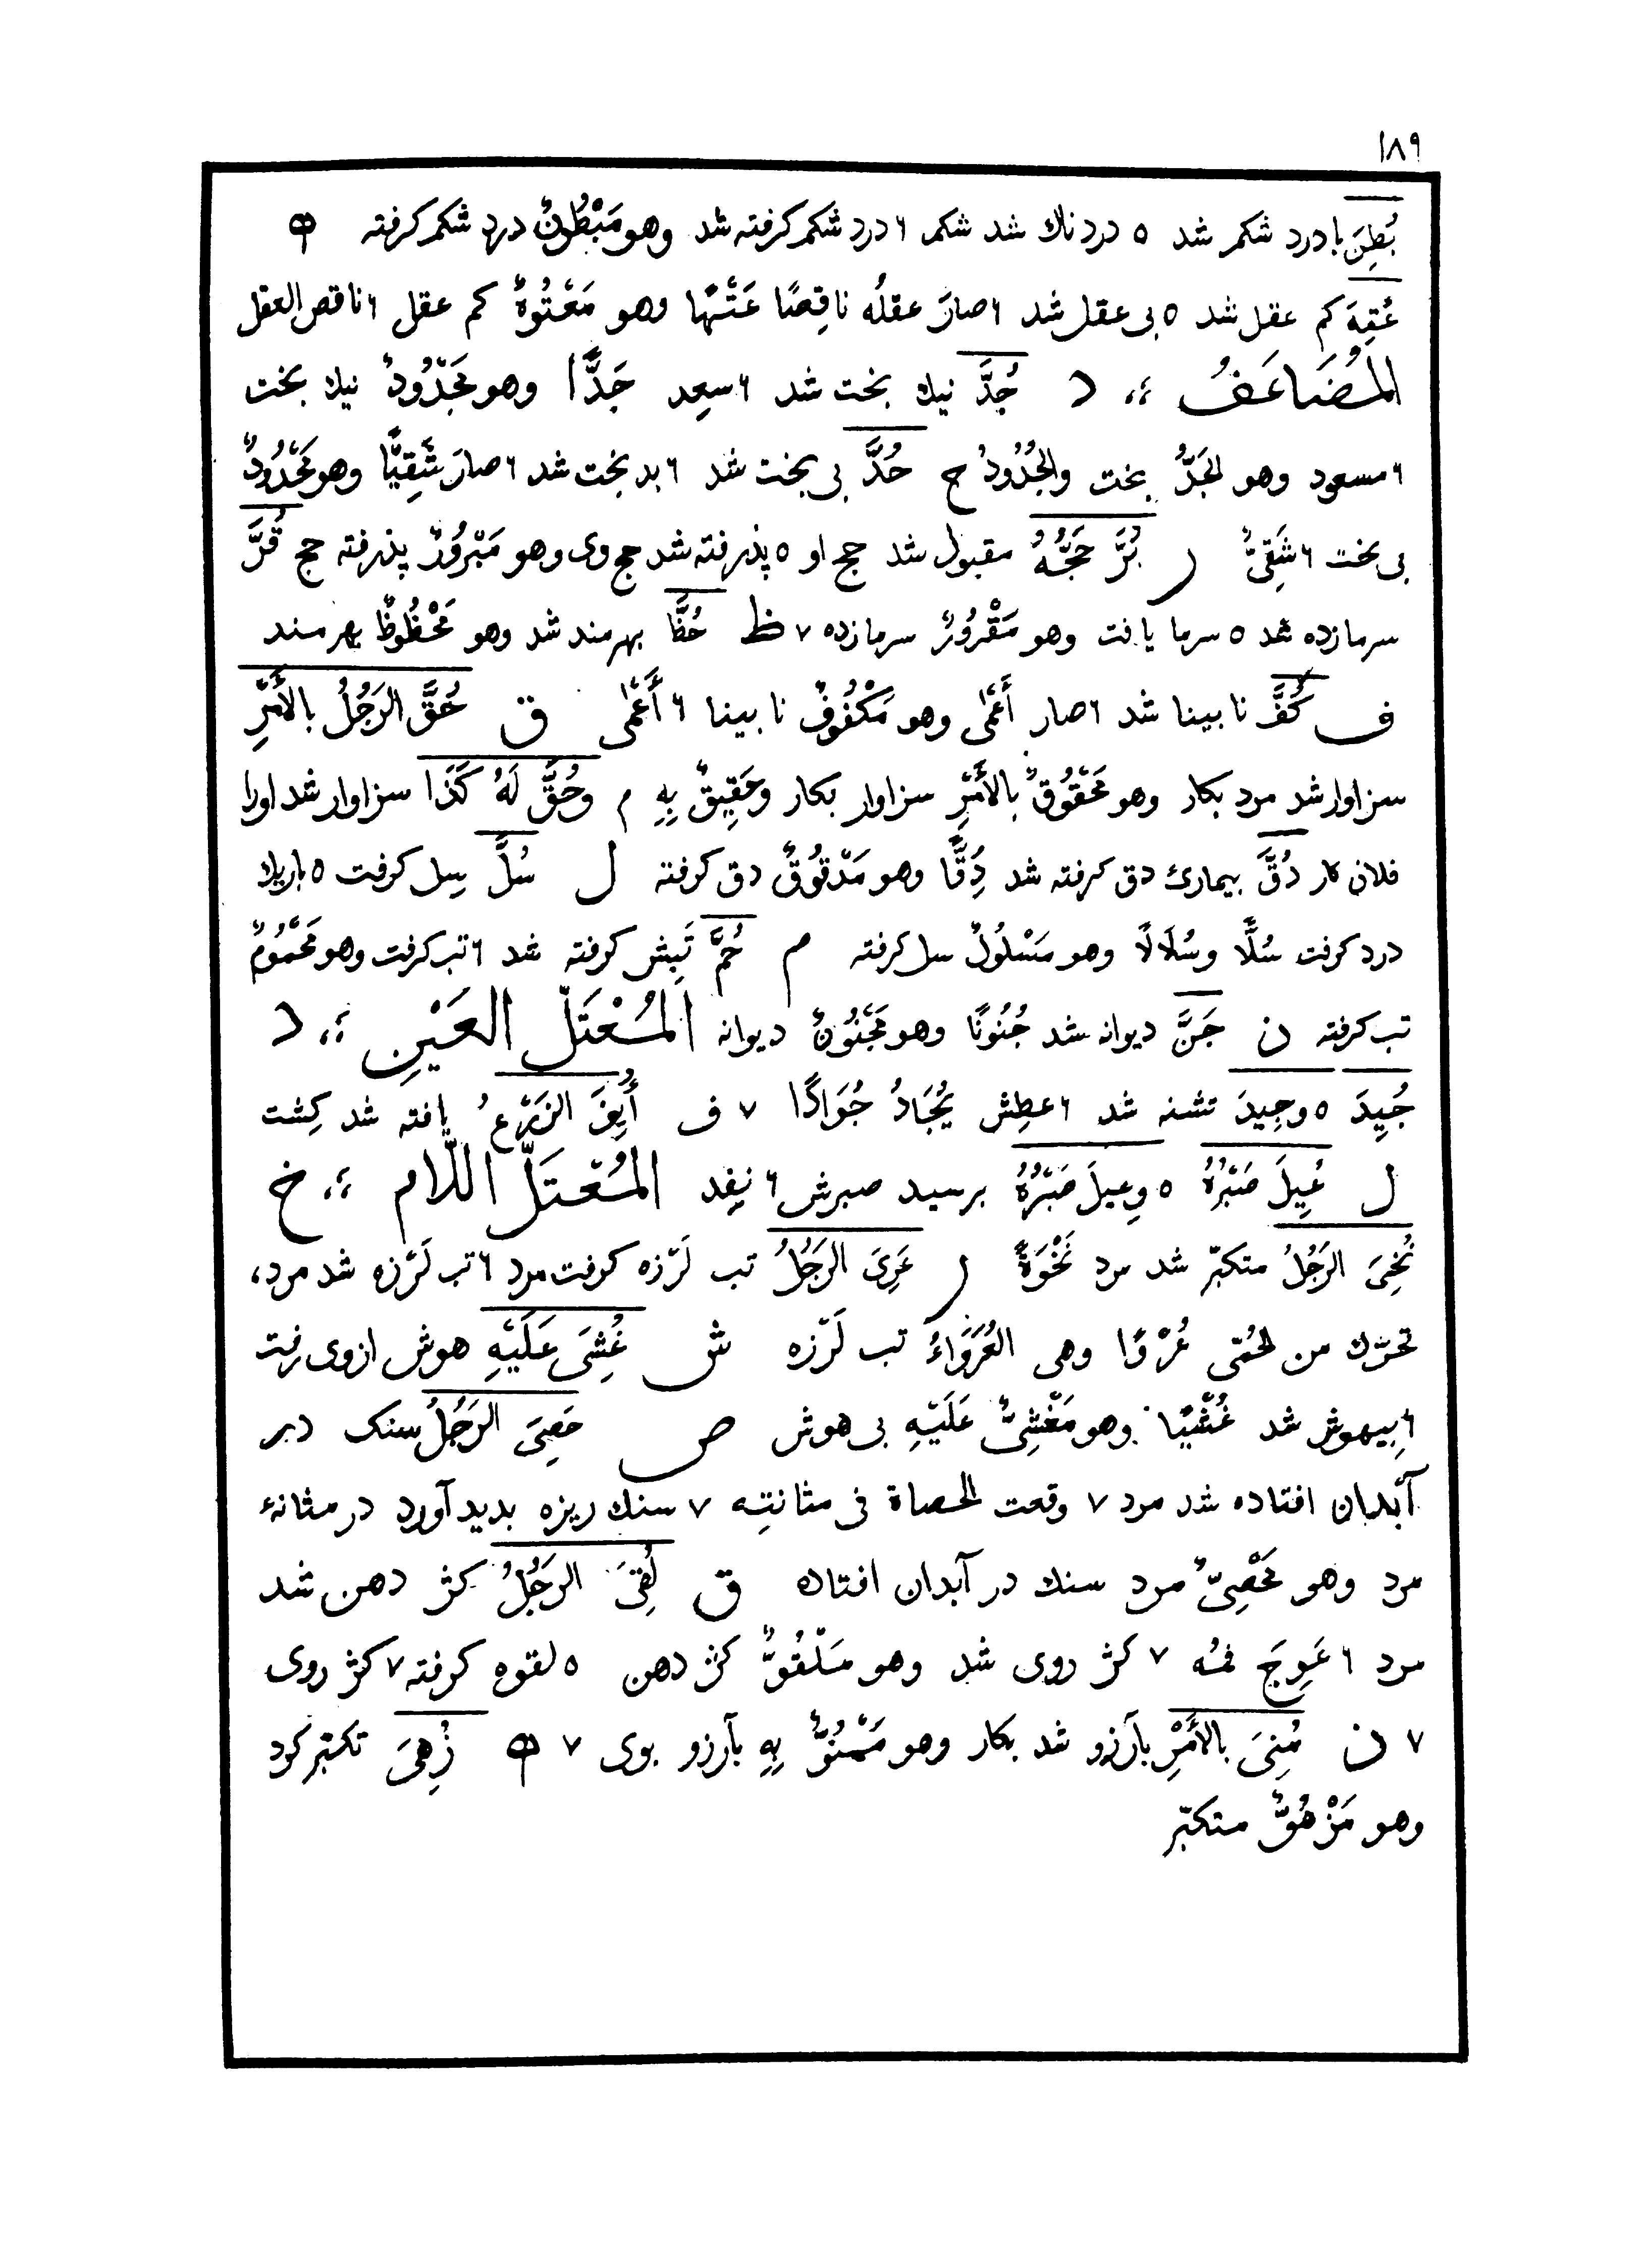 ١٨٩
بُطِنَ بادرد شکم شد ٥ دردناك شد شکم ٦ درد شکم کرفته شد وهو مَبْطُونٌ درد شکم کرفته ه
عُتِهَ کم عقل شد ٥ بی عقل شد ٦ صارَ عقلُه ناقِصًا عَتَهًا وهو مَعْتُوهٌ کم عقل ٦ ناقص العقل
المُضَاعَفُ ؛، د جُدَّ نیك بخت شد ٦ سعِد جَدًّا وهو مَجْدُودٌ نیك بخت
٦ مسعود وهو الجَدُّ بخت والجُدُودُ ج حُدَّ بی بخت شد ٦ بد بخت شد ٦ صارَ شَقِيًّا وهو مَحْدُودٌ
بی بخت ٦ شَقِیٌّ ر بُرَّ حَجُّهُ مقبول شد حج او ٥ پذرفته شد حج وی وهو مَبْرُورٌ پذرفته حج قُرَّ
سرمازده شد ٥ سرما یافت وهو مَقْرُورٌ سرمازده ٧ ظ حُظَّ بهرمند شد وهو مَحْظُوظٌ بهرمند
ف كُفَّ نابینا شد ٦ صار أَعْمَى وهو مَكْفُوفٌ نابینا ٦ أَعْمَى ق حُقَّ الرَجُلُ بالأَمْرِ
سزاوار شد مرد بکار وهو مَحْقُوقٌ بالأَمْرِ سزاوار بکار وحَقِيقٌ بِهِ م وحُقَّ لَهُ كَذَا سزاوار شد اورا
فلان کار دُقَّ بیماری دق کرفته شد دِقًّا وهو مَدْقُوقٌ دق کرفته ل سُلَّ سِل کرفت ٥ باریك
درد کرفت سُلًّا وسُلَالًا وهو مَسْلُولٌ سل کرفته م حُمَّ تَبِش کرفته شد ٦ تب کرفت وهو مَحْمُومٌ
تب کرفته ن جُنَّ دیوانه شد جُنُونًا وهو مَجْنُونٌ دیوانه المُعْتَلّ العَيْنِ ؛، د
جُيِدَ ٥ وجِيدَ تشنه شد ٦ عطِش يُجَادُ جُوَادًا ٧ ف أُيِفَ الزَرْعُ یافته شد کِشت
ل عُيِلَ صَبْرُهُ ٥ وعِيلَ صَبْرُهُ برسید صبرش ٦ نفِد المُعْتَلّ اللّام ؛، خ
نُخِیَ الرَجُلُ متکبّر شد مرد نَخْوَةً ر عُرِیَ الرَجُلُ تب لَرْزه کرفت مرد ٦ تب لَرْزه شد مرد،
تحرّك من الحُمّی عُرْوًا وهی العُرَوَاءُ تب لَرْزه ش غُشِیَ عَلَيْهِ هوش ازوی رفت
٦ بیهوش شد غُشْيًا وهو مَغْشِیٌّ عَلَيْهِ بی هوش ص حُصِیَ الرَجُلُ سنک در
آبدان افتاده شد مرد ٧ وقعت الحصاة فی مثانتِه ٧ سنك ریزه بدید آورد در مثانهٔ
مرد وهو مَحْصِیٌّ مرد سنك در آبدان افتاده ق لُقِیَ الرَجُلُ کژ دهن شد
مرد ٦ عَوِجَ فمُه ٧ کژ روی شد وهو مَلْقُوٌّ کژ دهن ٥ لقوه کرفته ٧ کژ روی
٧ ن مُنِیَ بالأَمْرِ بآرزو شد بکار وهو مَمْنُوٌّ بِهِ بآرزو بوی ٧ ه زُهِیَ تکبّر کرد
وهو مَزْهُوٌّ متکبّر